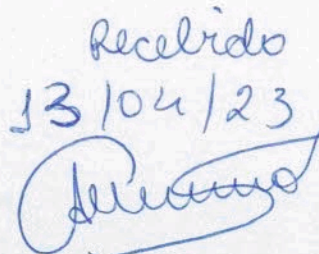 Recebido
13/04/23